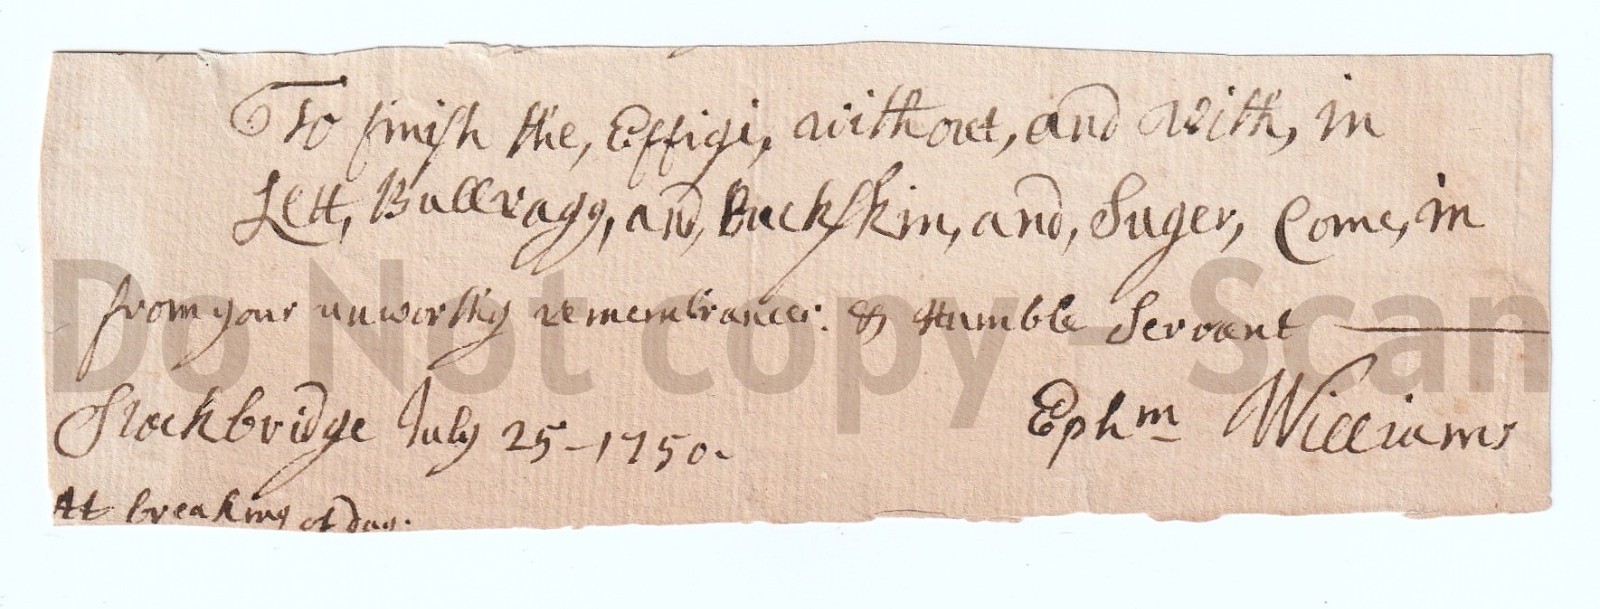 To finish the, Effigi, without, and with, in
Lett, Bullragg, and, Buckskin, and, Suger, Come, in
from your unworthy remembrancer. & Humble Servant
Do Not copy - Scan
Stockbridge July 25-1750.
Ephm Williams
At breaking of day.